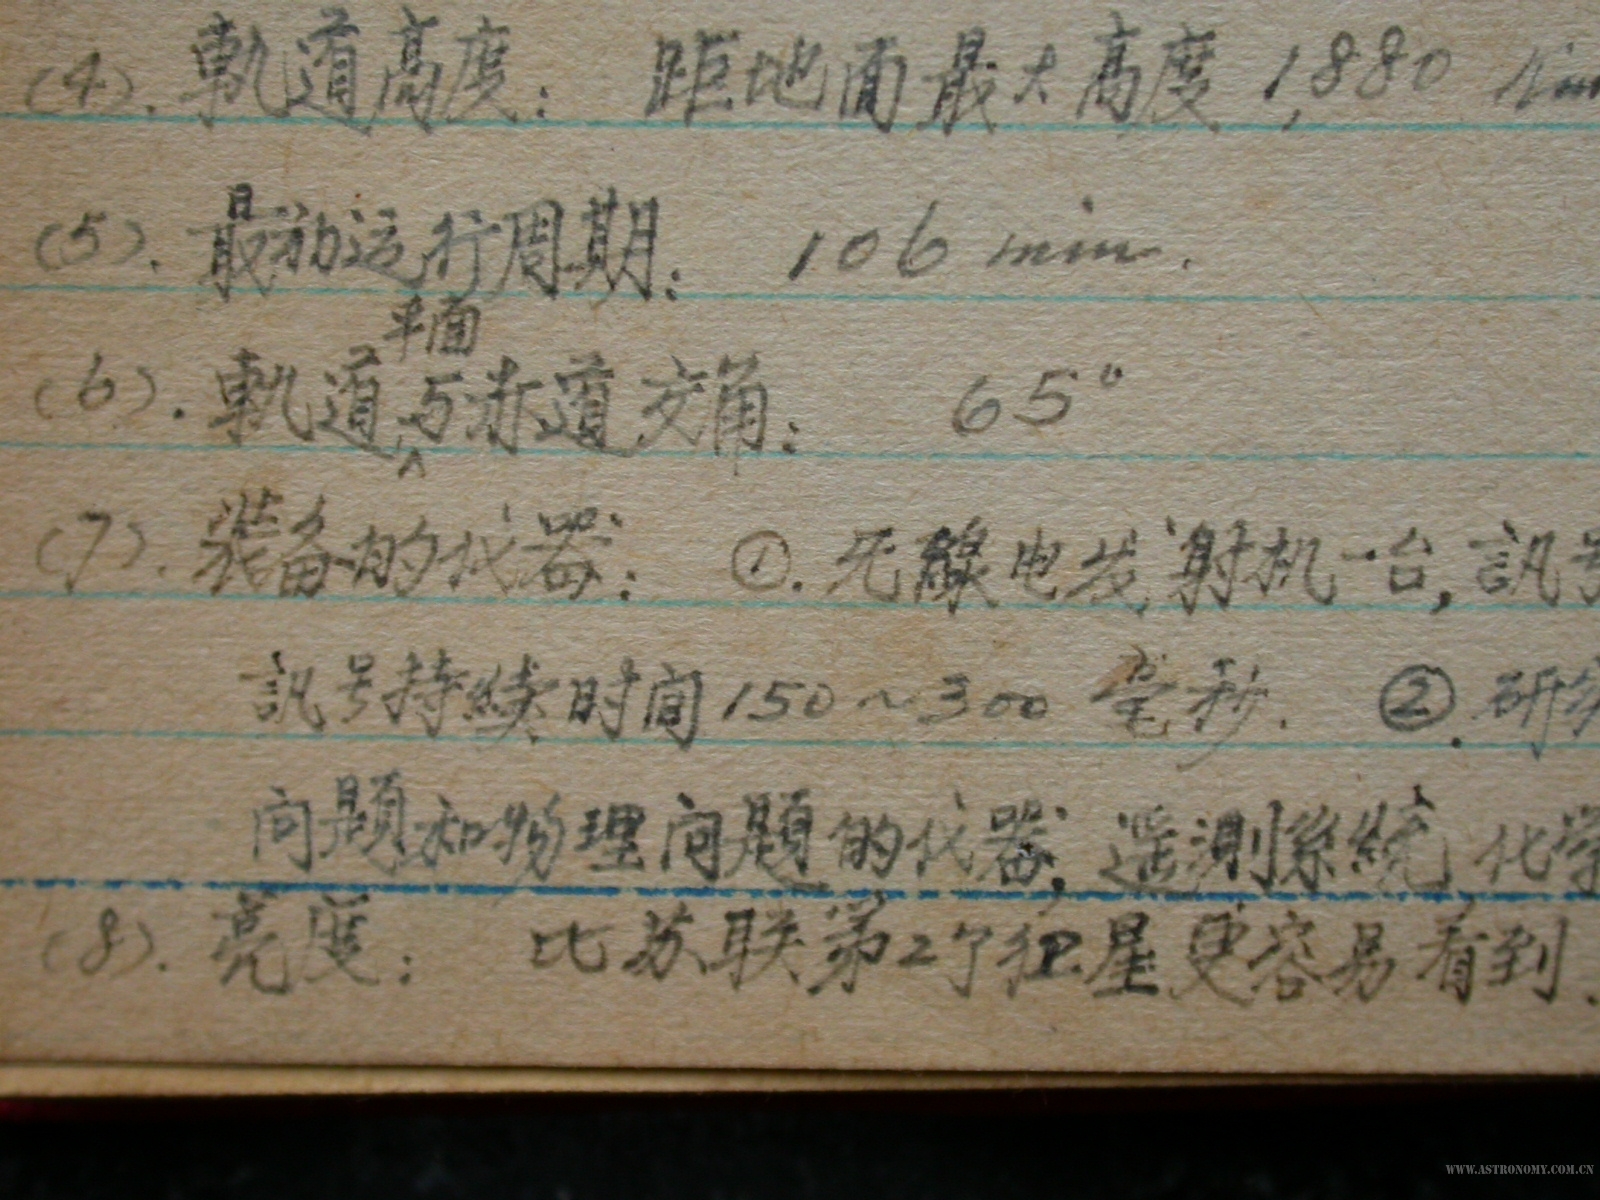 (4). 軌道高度: 距地面最大高度 1,880 km
(5). 最初运行周期: 106 min.
平面
(6). 軌道与赤道交角: 65°
(7). 装备的仪器: ①. 无線电发射机一台, 訊号
訊号持续时间150~300 毫秒. ②. 研究
问題和物理问題的仪器, 遥測系統, 化学
(8). 亮度: 比苏联第2个卫星更容易看到.
WWW.ASTRONOMY.COM.CN